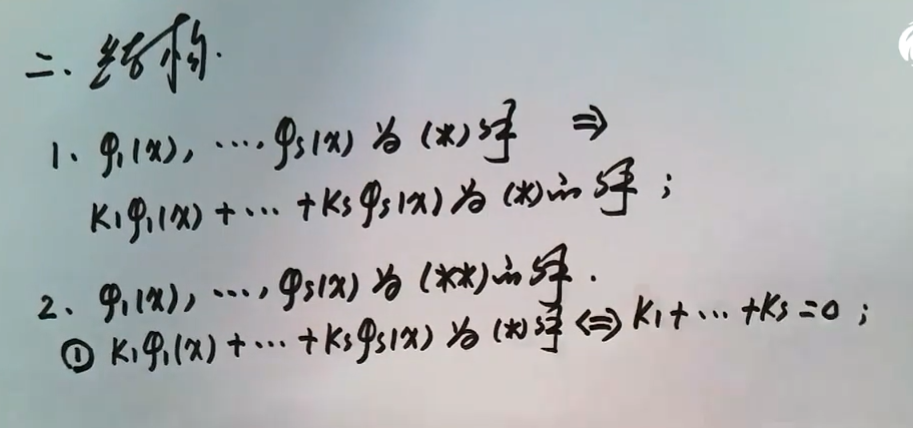 二、结构.
1、φ₁(x), …, φₛ(x) 为 (*) 解 ⇒
K₁φ₁(x) + … + Kₛφₛ(x) 为 (*) 的解；
2、φ₁(x), …, φₛ(x) 为 (**) 的解.
① K₁φ₁(x) + … + Kₛφₛ(x) 为 (*) 解 ⇔ K₁ + … + Kₛ = 0；